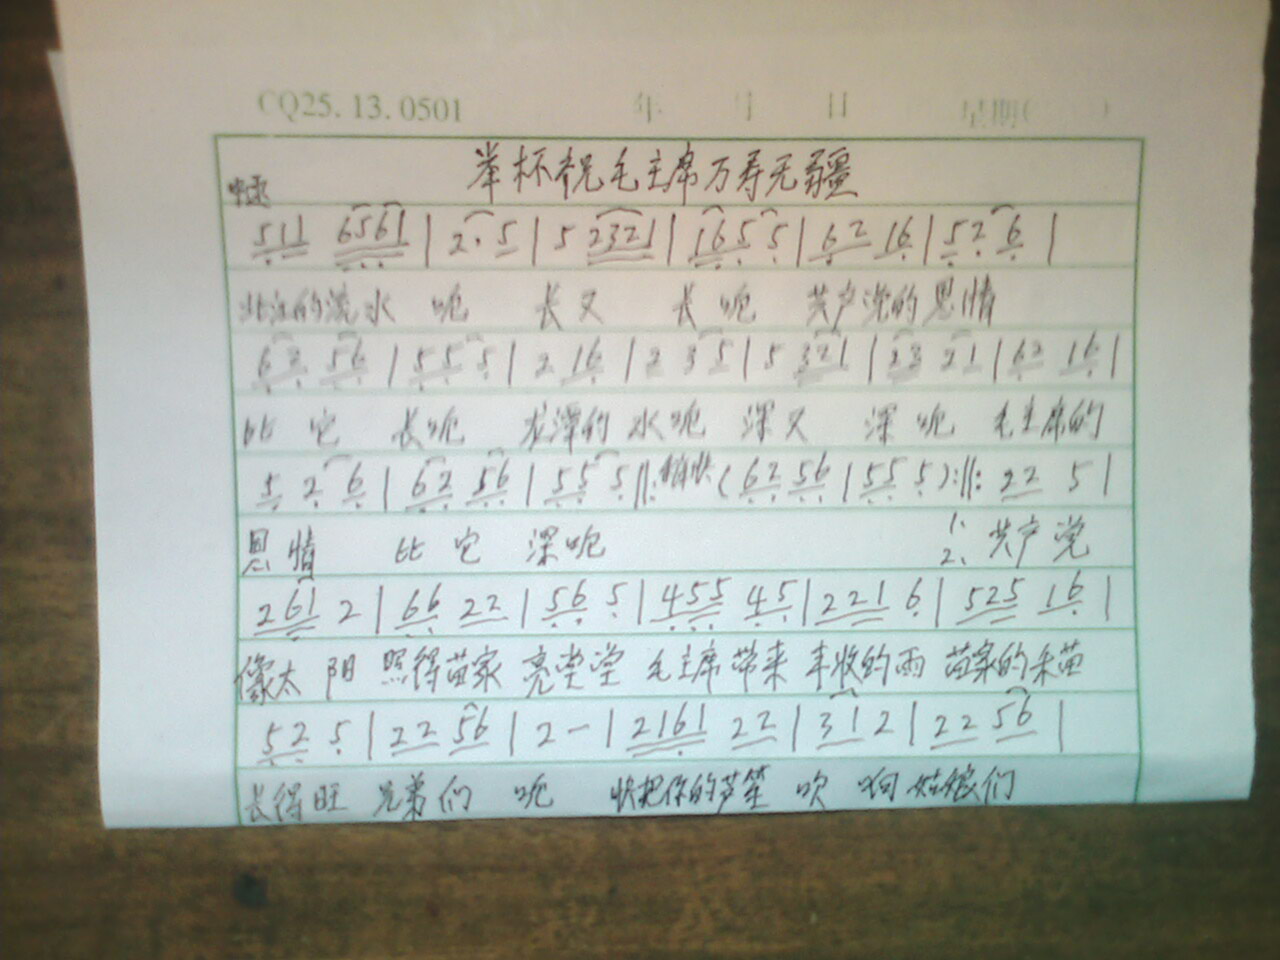 CQ25.13.0501 年 月 日 星期( )
举杯祝毛主席万寿无疆
中速
511 6561 | 2· 5 | 5 2321 | 165 5 | 62 16 | 52 6 |
北江的流水 呃 长又 长呃 共产党的恩情
62 56 | 55 5 | 2 16 | 2 3 5 | 5 321 | 23 21 | 62 16 |
比它 长呃 龙潭的水呃 深又 深呃 毛主席的
5 2 6 | 62 56 | 55 5 ‖: 稍快 (62 56 | 55 5) :‖: 22 5 |
恩情 比它 深呃 1、2、共产党
261 2 | 66 22 | 56 5 | 455 45 | 221 6 | 525 16 |
像太阳 照得苗家 亮堂堂 毛主席带来 丰收的雨 苗家的禾苗
52 5 | 22 56 | 2 — | 2161 22 | 31 2 | 22 56 |
长得旺 兄弟们 呃 快把你的芦笙 吹 响 姑娘们